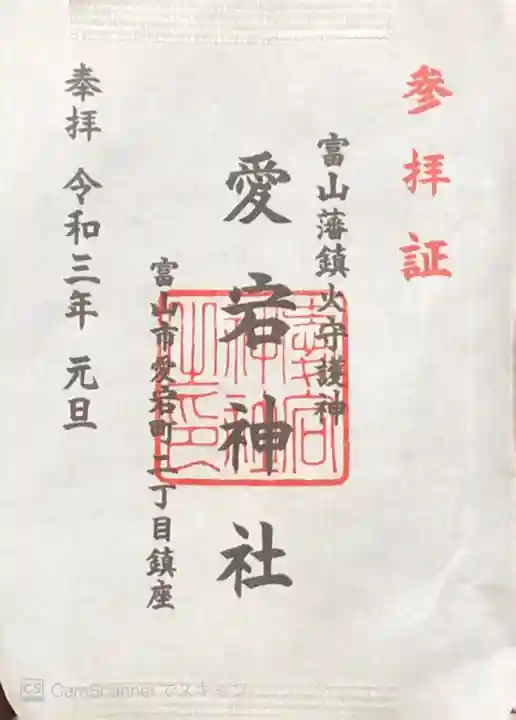 参拝証
富山藩鎮火守護神
愛宕神社
富山市愛宕町二丁目鎮座
奉拝 令和三年 元旦
愛宕神社之印
CS CamScanner でスキャン